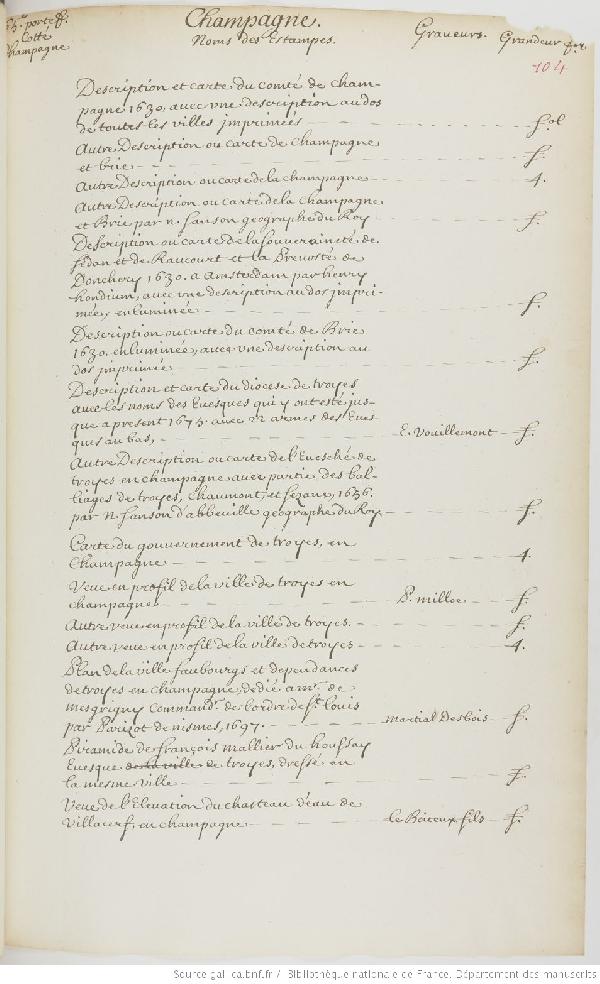 Champagne.
porte f.
Cotté
Champagne
Noms des Estampes.
Graveurs.
Grandeur
104
Description et carte du comté de Cham-
pagne 1630. avec vne description au dos
de toutes les villes jmprimées fol
Autre Description ou carte de Champagne
et brie f.
Autre Description ou carte de la Champagne 4.
Autre Description ou carte de la Champagne
et Brie par n. Sanson geographe du Roy f.
Description ou carte de la souveraineté de
Sedan et de Raucourt et la Prevosté de
Donchery 1630. a Amsterdam par henry
hondium, avec vne description au dos jmpri-
mée, enluminée f.
Description ou carte du comté de Brie
1630. enluminée, avec vne description au
dos jmprimée f.
Description et carte du diocese de troyes
avec les noms des Euesques qui y ont esté jus-
que a present 1675. avec 22 armes des Eues
ques au bas, E. Vouillemont f.
Autre Description ou carte de l'Euesché de
troyes en champagne avec partie des bal-
liages de troyes, Chaumont, et Sezane, 1656.
par N. Sanson d'abbeuille geographe du Roy f.
Carte du gouvernement de troyes, en
Champagne 4.
Veue en profil de la ville de troyes en
champagne P. millee f.
Autre veue en profil de la ville de troyes. f.
Autre veue en profil de la ville de troyes 4.
Plan de la ville faubourgs et dependances
de troyes en Champagne, dedié a mr. de
mesgrigny command.r de l'ordre de St. louis
par Parizot de nismes, 1697. martial desbois f.
Piramide de françois mallier du houssay
Euesque de la ville de troyes, dressé en
la mesme ville f.
Veue de l'Elevation du chasteau d'eau de
Villacerf, en champagne le Bateux fils f.
Source gallica.bnf.fr / Bibliothèque nationale de France. Département des manuscrits